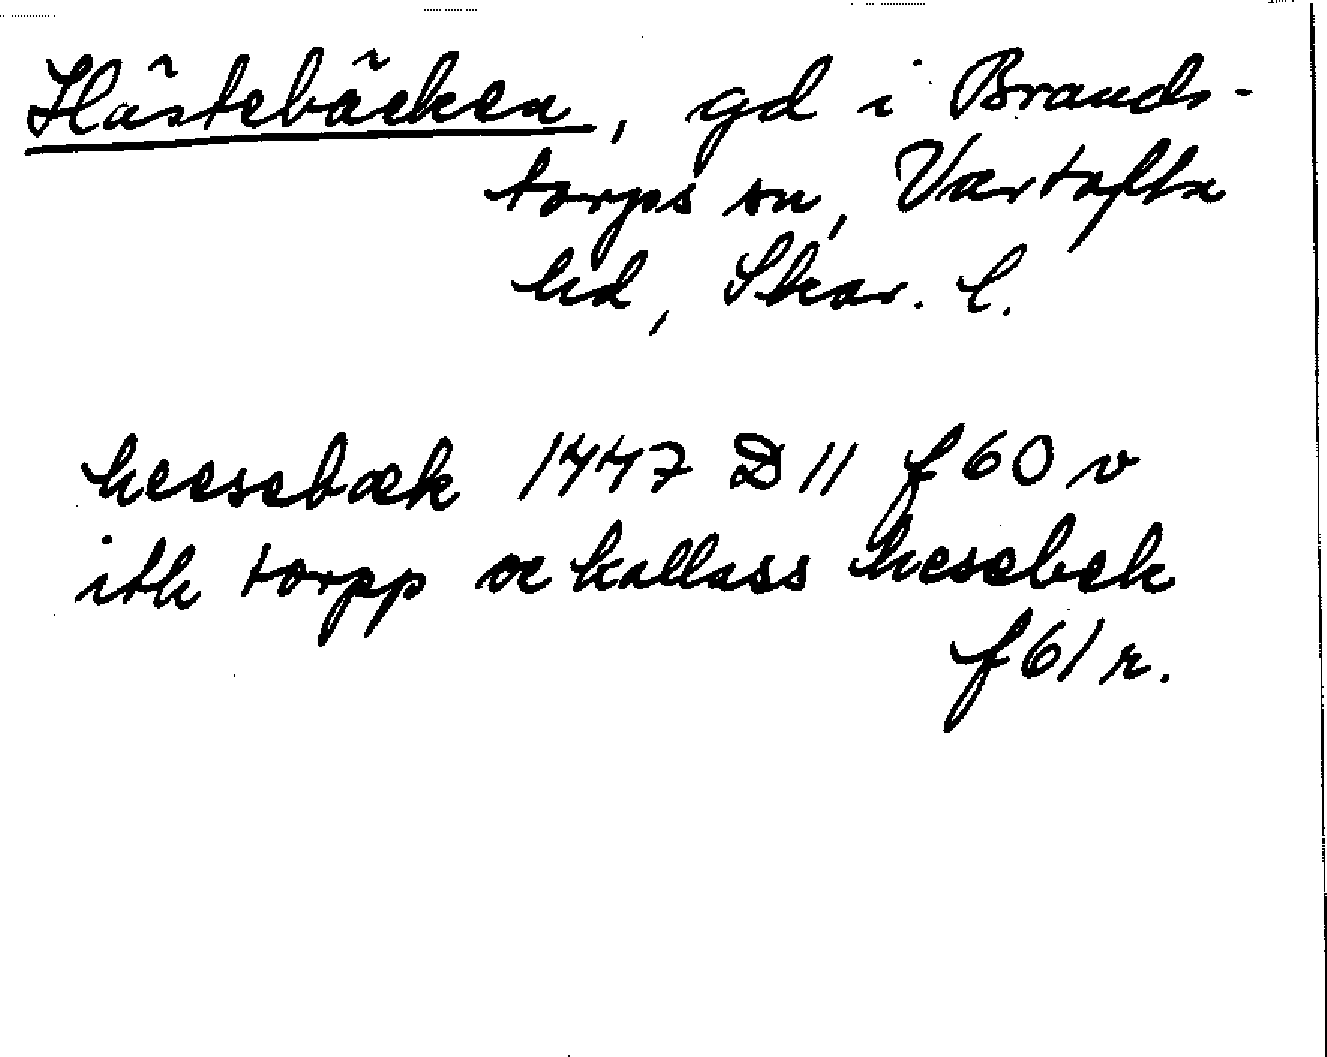 Hästebäcken, gd i Brands-
torps sn, Vartofta
hd, Skar. l.
heesebæk 1447 D 11 f 60 v
ith torpp oc kallass hesebek
f 61 r.